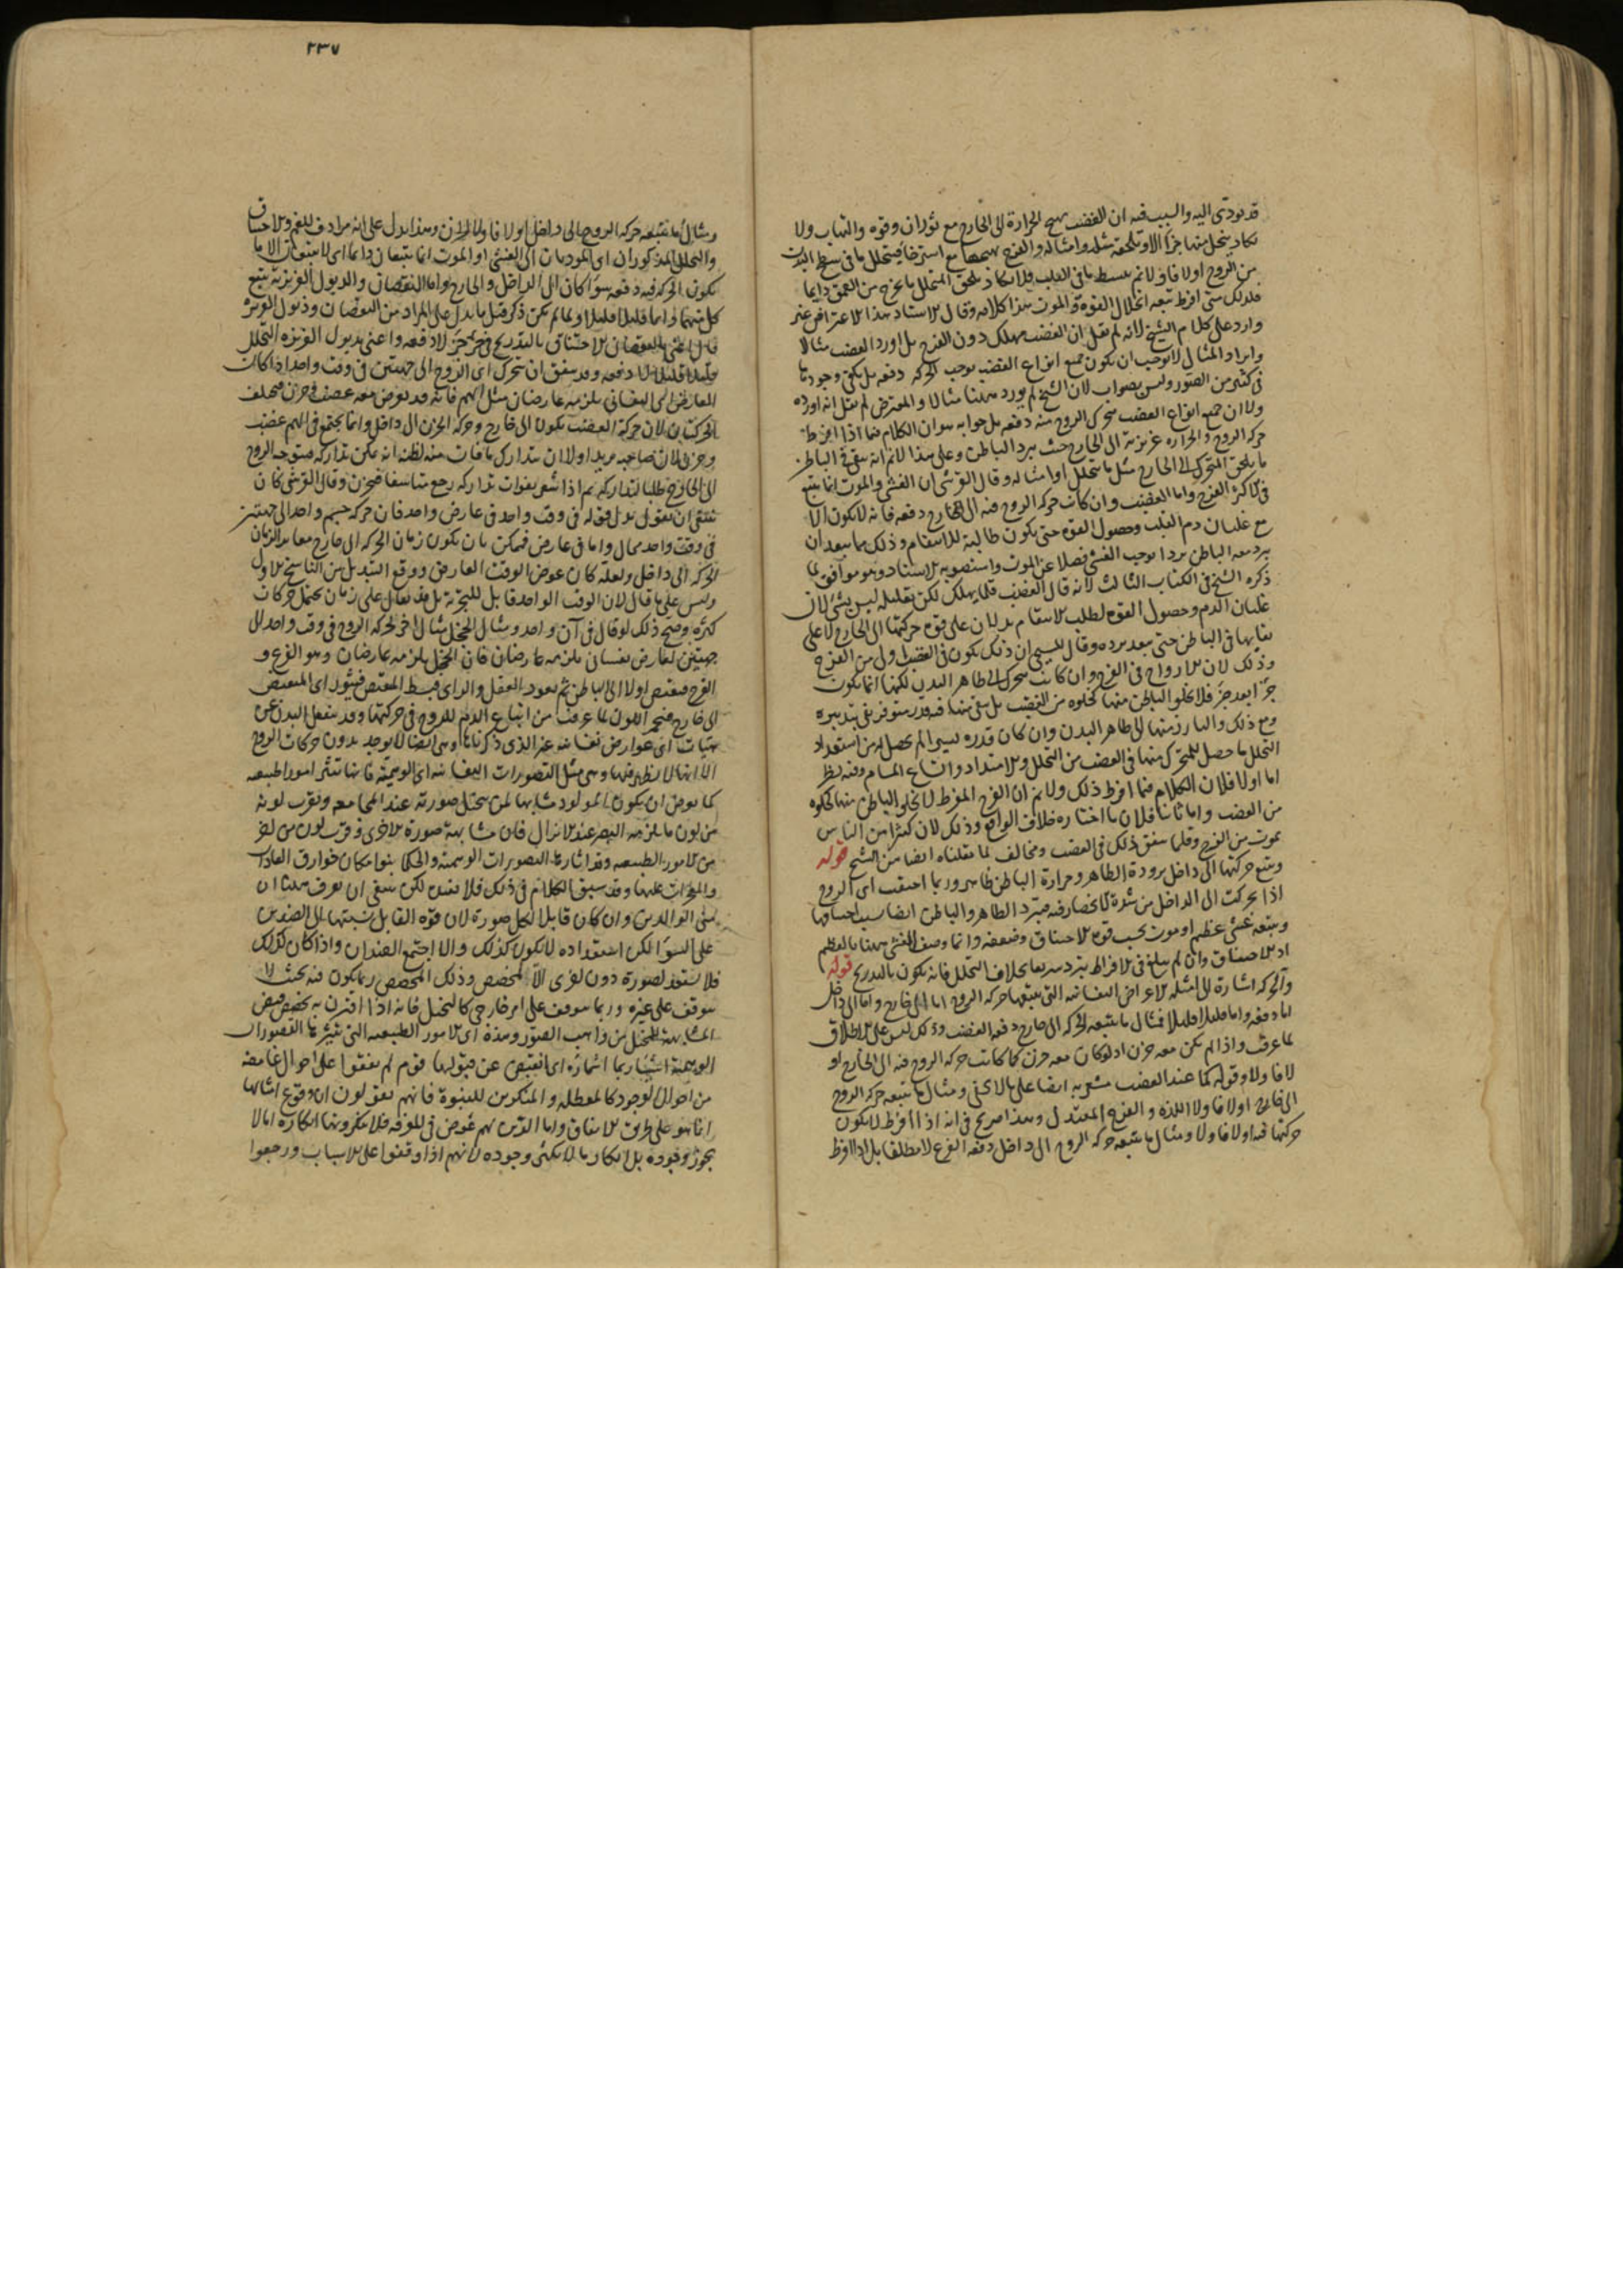 قد يودى اليه والسبب فيه ان الغضب يهيج الحرارة الى الخارج مع ثوران وقوة والتهاب ولا
يكاد يتحلل منها جزء الا وتلحقه مثله وامثاله والفرح يهيجها مع استرخاء فيتحلل ما فى سطح البدن
من الروح اولا فاولا ثم ينبسط ما فى القلب فلا يكاد يلحق المتحلل ما يخرج من العمق دايما
فلذلك متى افرط تبعه انحلال القوة والموت هذا كلامه وقال الاستاد هذا الاعتراض غير
وارد على كلام الشيخ لانه لم يقل ان الغضب مهلك دون الفرح بل اورد الغضب مثالا
وايراد المثال لا يوجب ان يكون جميع انواع الغضب يوجب الحركه دفعه بل يكفى وجودها
فى كثير من الصور وليس بصواب لان الشيخ لم يورد ههنا مثالا والمعترض لم يقل انه اورده
ولا ان جميع انواع الغضب يتحرك الروح منه دفعه بل جوابه هو ان الكلام فيما اذا افرطت
حركه الروح والحراره غريزية الى الخارج حيث يبرد الباطن وعلى هذا لا نم انه يبقى فى الباطن
ما يلحق المتحرك الى الخارج مثل ما يتحلل او امثاله وقال القرشى ان الغشى والموت انما يتبع
فى الاكثر الفرح واما الغضب وان كانت حركه الروح فيه الى الخارج دفعه فانه لا يكون الا
مع غليان دم القلب وحصول القوه حتى يكون طالبة للانتقام وذلك مما يبعد ان
يبرد معه الباطن بردا يوجب الغشى فضلا عن الموت واستصوبه الاستاد وهو موافق لما
ذكره الشيخ فى الكتاب الثالث لانه قال الغضب قلما يهلك لكن تعليله ليس بشئ لان
غليان الدم وحصول القوه لطلب الانتقام يدلان على قوه حركتها الى الخارج لا على
بقايها فى الباطن حتى يبعد برده وقال المسيحى ان ذلك يكون فى الغضب اولى من الفرح
وذلك لان الارواح فى الفرح وان كانت تتحرك الى ظاهر البدن لكنها انما يكون
جزءا بعد جزء فلا يخلوا الباطن منها كخلوه من الغضب بل يبقى منها فيه قدر متوفر يفى بتدبيره
ومع ذلك والبارز منها الى ظاهر البدن وان كان قدره ليسرا لم يحصل له من استعداد
التحلل ما حصل للمتحرك منها فى الغضب من التحلل والامتداد واتساع المسام وفيه نظر
اما اولا فلان الكلام فيما افرط ذلك ولا نم ان الفرح المفرط لا يخلو الباطن منها كخلوه
من الغضب واما ثانيا فلان ما اختاره خلاف الواقع وذلك لان كثيرا من الناس
يموت من الفرح وقلما يتفق ذلك فى الغضب ومخالف لما نقلناه ايضا من الشيخ قوله
ويتبع حركتها الى داخل برودة الظاهر وحرارة الباطن ظاهر وربما اختنقت اى الروح
اذا تحركت الى الداخل من شدة الانحصار فيه فيبرد الظاهر والباطن ايضا بسبب اختناقها
ويتبعه غشى عظيم او موت بحسب قوة الاختناق وضعفه وانما وصف الغشى ههنا بالعظم
اذ الاختناق وان لم يبلغ فى الافراط يبرد سريعا بخلاف التحلل فانه يكون بالتدريج قوله
والحركه اشارة الى امثلة الاعراض النفسانيه التى يتبعها حركه الروح اما الى خارج واما الى داخل
اما دفعه واما قليلا قليلا فمثال ما يتبعه الحركه الى خارج دفعه الغضب وذلك ليس على الاطلاق
لما عرفت واذا لم يكن معه حزن اذ لو كان معه حزن كما كانت حركه الروح فيه الى الخارج لو
لا فاولا وقوله كما عند الغضب مشعر به ايضا على ما لا يخفى ومثال ما يتبعه حركه الروح
الى خارج اولا فاولا اللذه والفرح المعتدل وهذا صريح فى انه اذا افرط لا يكون
حركتها فيه اولا فاولا ومثال ما يتبعه حركه الروح الى داخل دفعه الفزع لا مطلقا بل اذا افرط
٢٣٧
ومثال ما يتبعه حركه الروح الى داخل اولا فاولا الحزن وهذا يدل على انه مرادف للغم والاختناق
والتحلل المذكوران اى المؤديان الى الغشى او الموت انما يتبعان دايما اى لا يتبعان الا ما
يكون الحركه فيه دفعه سوا كان الى الداخل والخارج واما النقصان والذبول الغريزية يتبع
كل منهما دايما قليلا قليلا ولما لم يكن ذكر قبل ما يدل على المراد من النقصان وذبول الغريزة
قال اعنى بالنقصان الاختناق بالتدريج فى جزء جزء لا دفعه واعنى بذبول الغريزه التحلل
قليلا قليلا لا دفعه وقد يتفق ان تتحرك اى الروح الى جهتين فى وقت واحد اذا كان
العارض النفسانى يلزمه عارضان مثل الهم فانه قد يعرض معه غضب وحزن فيختلف
الحركتان لان حركة الغضب يكون الى خارج وحركه الحزن الى داخل وانما يجتمع فى الهم غضب
وحزن لان صاحبه يريد اولا ان يتدارك ما فات منه لظنه انه يمكن تداركه فيتوجه الروح
الى الخارج طلبا لتداركه ثم اذا شعر بفوات تداركه رجع متاسفا فحزن وقال القرشى كان
ينبغى ان يقول بدل قوله فى وقت واحد فى عارض واحد فان حركه جسم واحد الى جهتين
فى وقت واحد محال واما فى عارض فيمكن بان يكون زمان الحركه الى خارج مغاير لزمان
الحركه الى داخل ولعله كان عوض الوقت العارض ووقع التبديل من الناسخ الاول
وليس على ما قال لان الوقت الواحد قابل للتجزية بل قد يقال على زمان يحتمل حركات
كثره وصح ذلك لو قال فى آن واحد ومثال الخجل مثال اخر لحركه الروح فى وقت واحد الى
جهتين لعارض نفسانى يلزمه عارضان فان الخجل يلزمه عارضان وهو الفزع و
الفرح فينقبض اولا الى الباطن ثم يعود العقل والراى فيبسط المنقبض فيثور اى المنقبض
الى خارج فيحمر اللون لما عرفت من اتباع الدم للروح فى حركتها وقد ينفعل البدن عن
هيئات اى عوارض نفسانيه غير الذى ذكرناها وهى ايضا لا يوجد بدون حركات الروح
الا انها لا يظهر فيها وهى مثل التصورات النفسانيه اى الوهمية فانها تثير امورا طبيعيه
كما يعرض ان يكون المولود مشابها لمن يتخيل صورته عند المجامعه ويقرب لونه
من لون ما يلزمه البصر عند الانزال فان مشابهة صورة لاخرى وقرب لون من لون
من الامور الطبيعيه وقد اثارتها التصورات الوهمية والحكما بنوا مكان خوارق العادات
والمعجزات عليها وقد سبق الكلام فى ذلك فلا نعيده لكن ينبغى ان يعرف ههنا ان
منى الوالدين وان كان قابلا لكل صورة لان قوه القابل نسبتها الى الضدين
على السوا لكن استعداده لا يكون كذلك والا اجتمع الضدان واذا كان كذلك
فلا يستعد لصورة دون اخرى الا لمخصص وذلك المخصص ربما يكون فيه بحيث لا
يتوقف على غيره وربما يتوقف على امر خارجى كالتخيل فانه اذا اقترن به تخصص فيض
المشابهه للتخيل من واهب الصور وهذه اى الامور الطبيعيه التى تثيرها التصورات
الوهمية اشياء ربما اشمازه اى انقبض عن قبولها قوم لم يقفوا على احوال غامضه
من احوال الوجود كالمعطله والمنكرين للنبوة فانهم يقولون ان وقوع امثالها
انما هو على طريق الاتفاق واما الذين لهم غوض فى المعرفه فلا ينكرونها انكاره ما لا
يجوز وجوده بل انكار ما لا يمكن وجوده لانهم اذا وقفوا على الاسباب ورجعوا